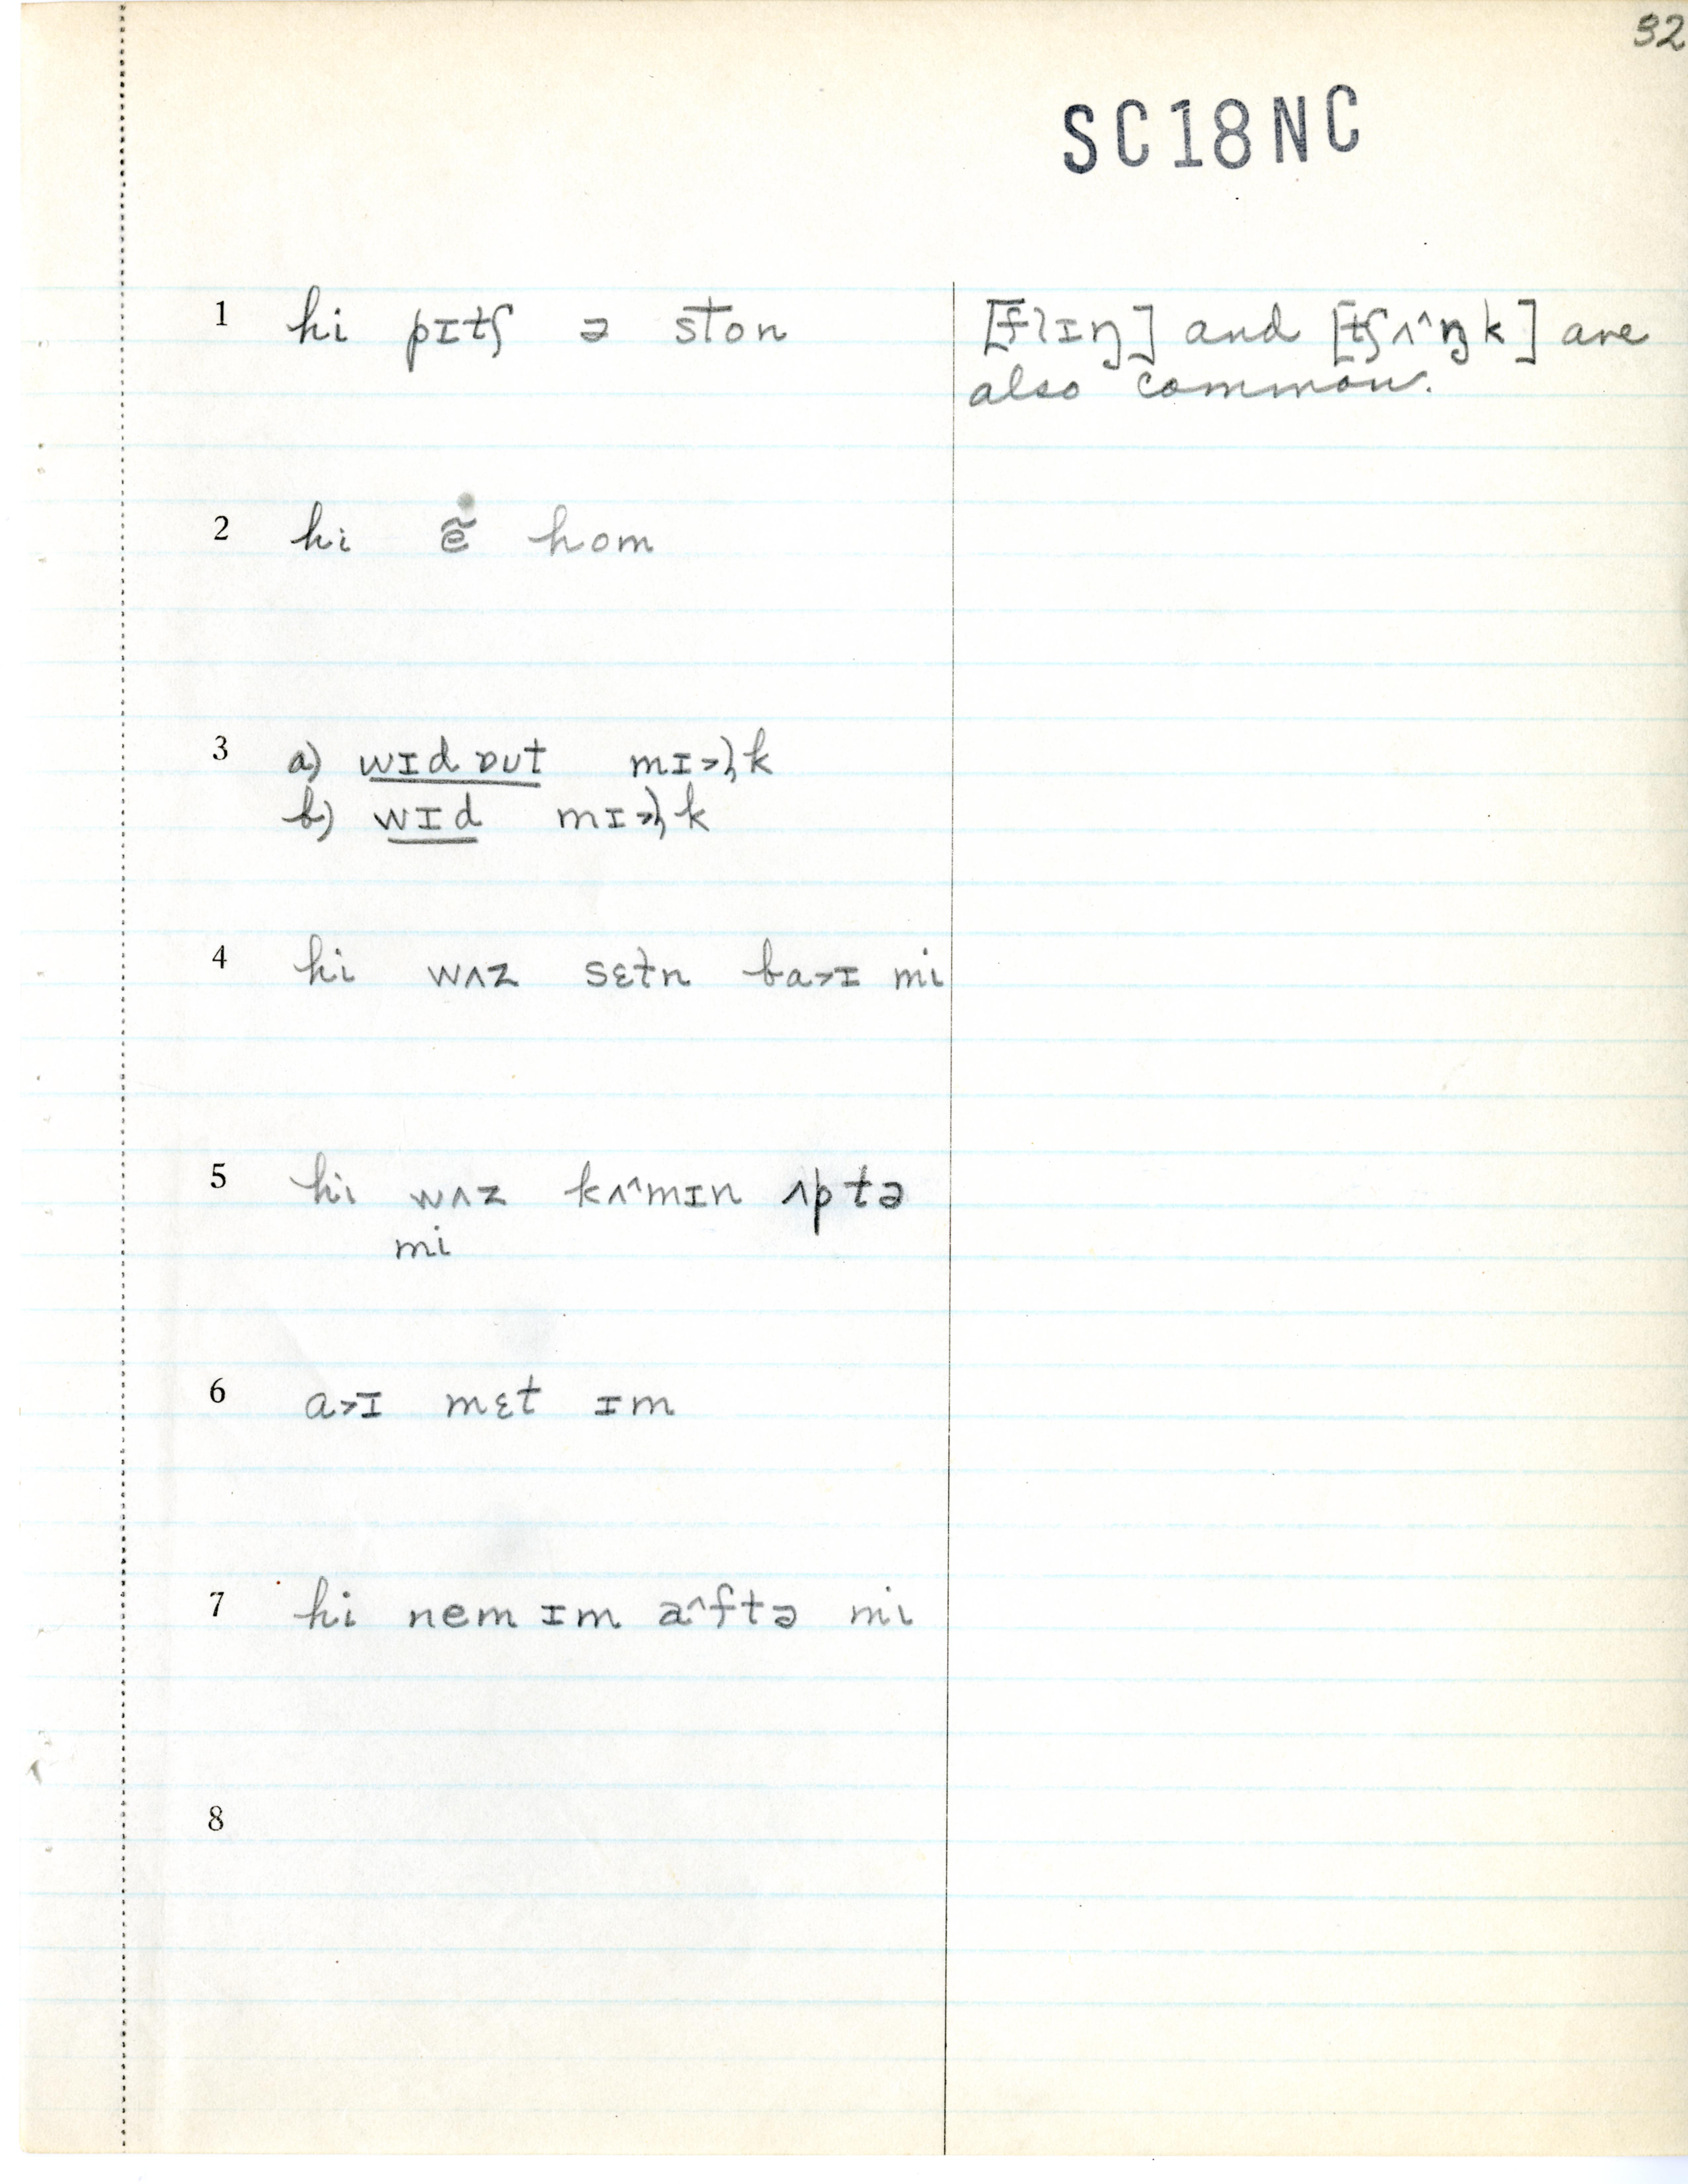 32
SC18NC
1 hi pɪtʃ ə ston [flɪŋ] and [tʃʌ^ŋk] are
also common.
2 hi ẽ hom
3 a) wɪd ɒut mɪ˃l̩k
b) wɪd mɪ˃l̩k
4 hi wʌz sɛtn ba˃ɪ mi
5 hi wʌz kʌ^mɪn ʌp tə
mi
6 a˃ɪ mɛt ɪm
7 hi nem ɪm a^ftə mi
8